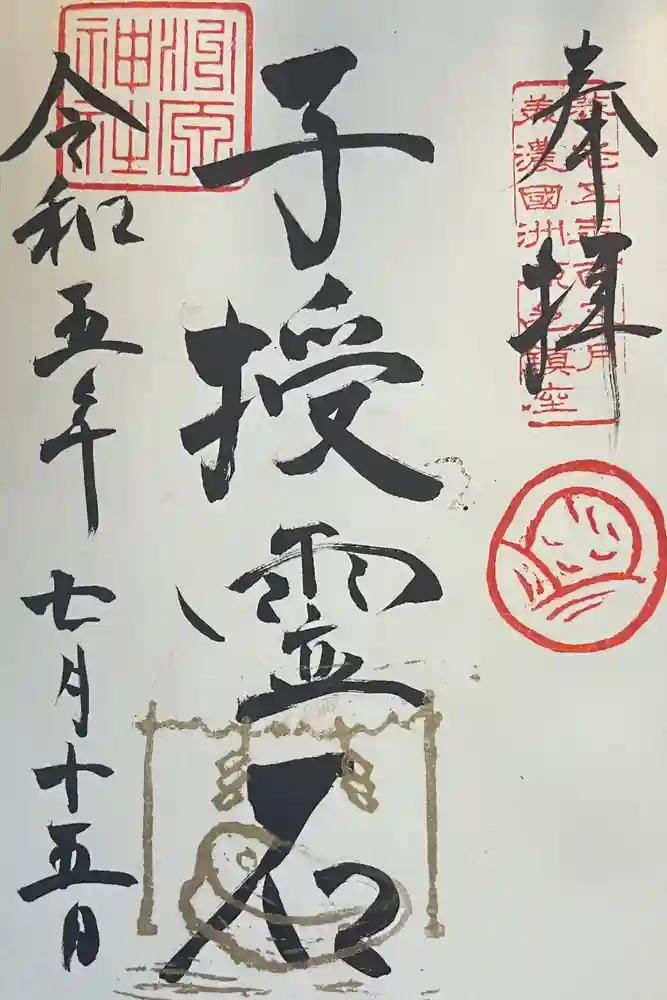 奉拝
美濃國洲原 鎮座
子授霊石
洲原
神社
令和五年七月十五日